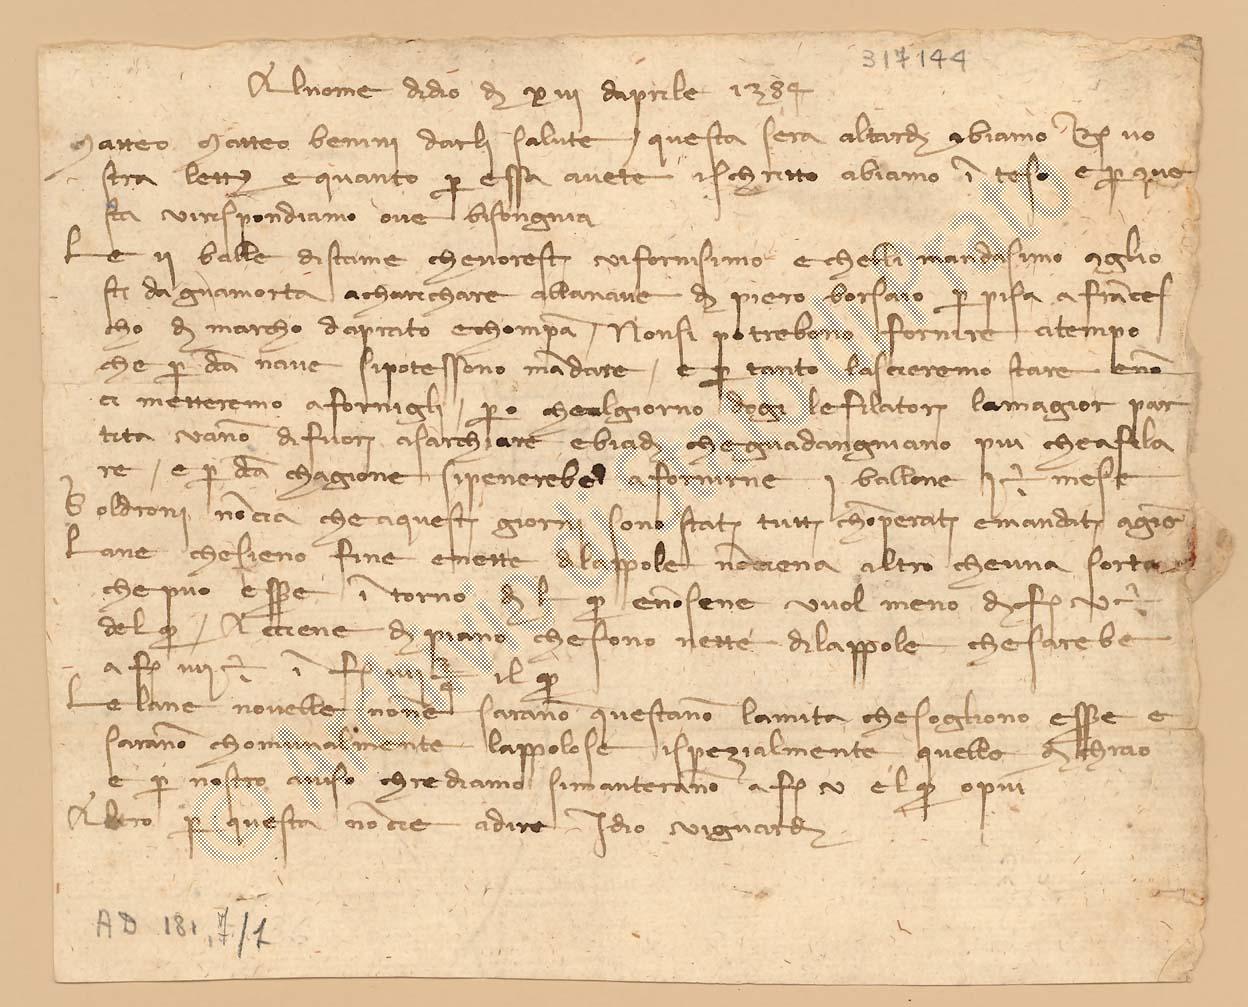 317144
Al nome di dio di xvii daprile 1384
Matteo Matteo benini darli salute / questa sera altardi abiamo R vo
stra lettera e quanto p essa avete ischritto abiamo i teso e p que
sta virispondiamo ove bisongnia
Le ii balle distame chevoresti vifornisimo e chelli mandasimo aglio
sti daguamorta acharichare allanave di piero borsaio p pisa afrances
cho di marcho daprato echompa / Nonsi potrebono fornire atempo
che p dta nave sipotessono madare / e p tanto lascieremo stare eno
ci metteremo afornigli / po chealgiorno doggi lefilatori lamagior par
tita vano difuori asarchiare ebiadi cheguadangniano piu cheafila
re / e p dta chagione sipenerebe afornirne i ballone mese
Boldroni nocia cheaquesti giorni sono stati tutti choperati emandati
Lane chesieno fine enette dilappole nociena altro cheuna sorta
chepuo essere i torno di enosene vuol meno di
del / Acciene di piano chesono nette dilappole chesarebe
a f i f il
Le lane novelle none sarano questano lamita chesogliono essere e
sarano chomunalmente lappolose ispezialmente quelle di chrao
e p nostro aviso chrediamo simanterano a f v el opiu
Altro p questa nocie adire Idio viguardi
AD 181,7/1
© Archivio di Stato di Prato